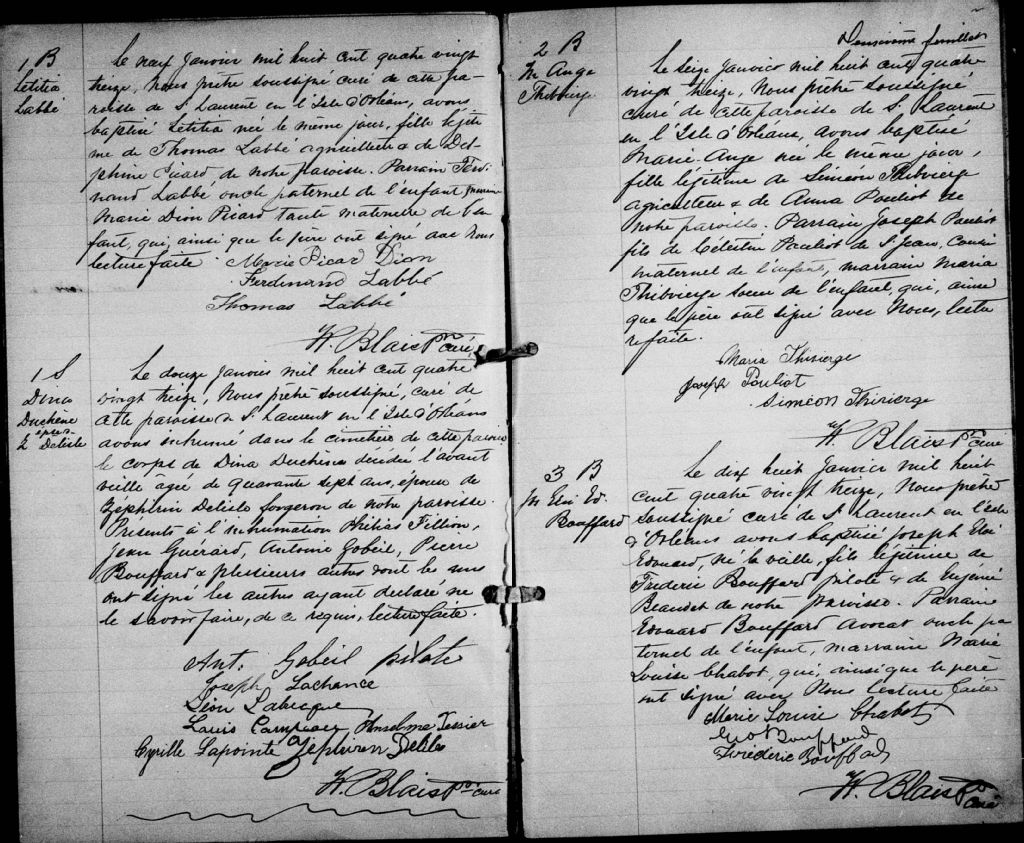 1 B
Letitia
Labbé
Le neuf Janvier mil huit cent quatre vingt
treize, Nous prêtre soussigné curé de cette pa-
roisse de St Laurent en l'Isle d'Orléans, avons
baptisé Letitia née le même jour, fille légiti
me de Thomas Labbé agriculteur & de Del-
phine Picard de notre paroisse. Parrain Ferdi-
nand Labbé oncle paternel de l'enfant marraine
Marie Dion Picard tante maternelle de l'en
fant, qui, ainsi que le père ont signé avec Nous
lecture faite.
Marie Picard Dion
Ferdinand Labbé
Thomas Labbé
H. Blais Ptre curé
1 S
Dina
Duchêne
épse
Z Delisle
Le douze Janvier mil huit cent quatre
vingt treize, Nous prêtre soussigné, curé de
cette paroisse de St Laurent en l'Isle d'Orléans
avons inhumé dans le cimetière de cette paroisse
le corps de Dina Duchêne décédée l'avant
veille agée de quarante sept ans, épouse de
Zéphirin Delisle forgeron de notre paroisse.
Présents à l'inhumation Fillion,
Jean Guérard, Antoine Gobeil, Pierre
Bouffard & plusieurs autres dont les uns
ont signé les autres ayant declaré ne
le savoir faire, de ce requis, lecture faite.
Ant. Gobeil pilote
Joseph Lachance
Léon Labrecque
Louis Anselme Tessier
Cyrille Lapointe Zephirin Delisle
H. Blais Ptre curé
Deuxième feuillet
2 B
M Ange
Thibierge
Le seize Janvier mil huit cent quatre
vingt treize, Nous prêtre soussigné
curé de cette paroisse de St Laurent
en l'Isle d'Orléans, avons baptisé
Marie-Ange née le même jour,
fille légitime de Siméon Thibierge
agriculteur & de Anna Pouliot de
notre paroisse. Parrain Joseph Pouliot
fils de Célestin Pouliot de St Jean, cousin
maternel de l'enfant, marraine Maria
Thibierge soeur de l'enfant, qui, ainsi
que le père ont signé avec Nous, lectu
re faite.
Maria Thivierge
Joseph Pouliot
Siméon Thivierge
H. Blais Ptre curé
3 B
Jos Ed.
Bouffard
Le dix huit Janvier mil huit
cent quatre vingt treize, Nous prêtre
soussigné curé de St Laurent en l'Isle
d'Orléans avons baptisé Joseph
Edouard, né la veille, fils légitime de
Fréderic Bouffard pilote & de Eugénie
Beaudet de notre paroisse. Parrain
Edouard Bouffard avocat oncle pa
ternel de l'enfant, marraine Marie
Louise Chabot, qui, ainsi que le père
ont signé avec Nous lecture faite
Marie Louise Chabot
Bouffard
Fréderic Bouffard
H. Blais Ptre curé